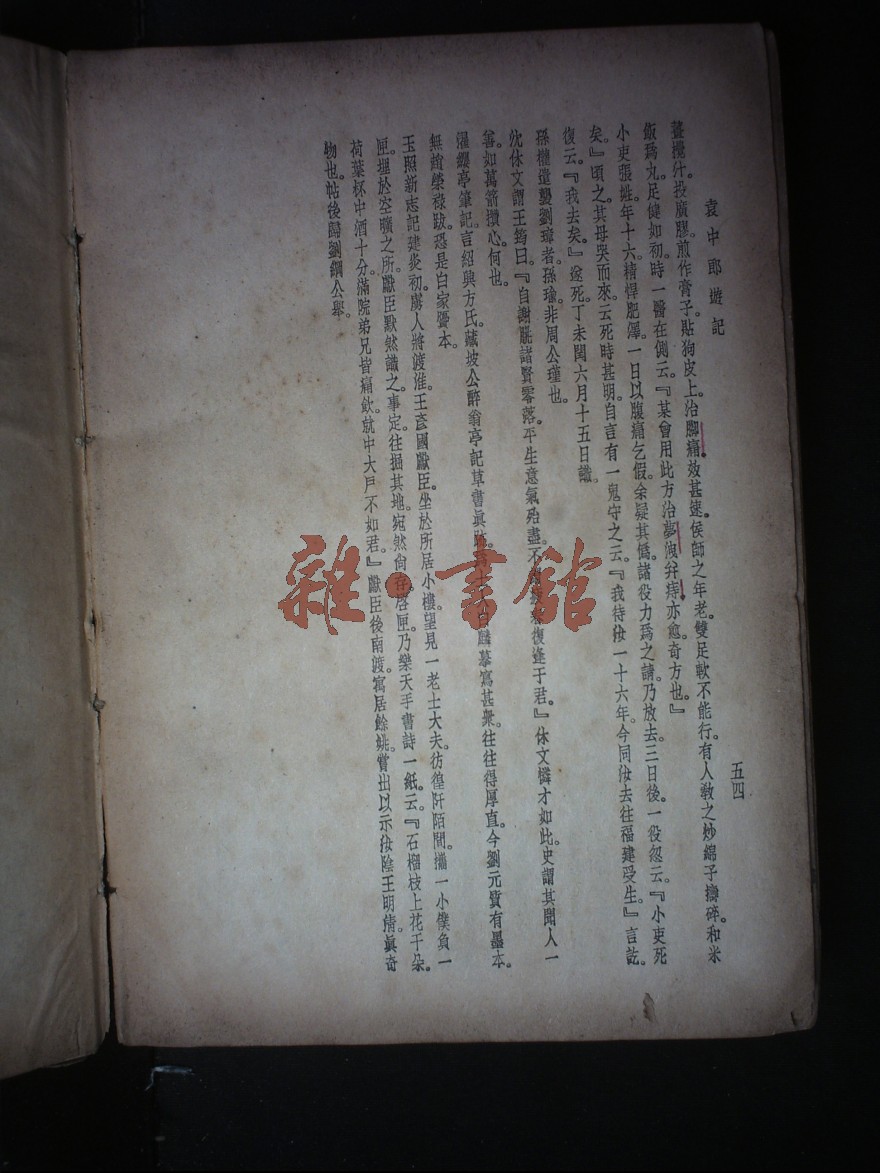 袁中郎遊記
五四
薑攪汁投廣膠煎作膏子貼狗皮上。治脚痛。效甚速。侯師之年老。雙足軟不能行。有人敎之妙綿子擣碎。和米
飯爲丸。足健如初。時一醫在側云。『某曾用此方治夢洩幷痔。亦愈。奇方也。』
小吏張姓。年十六。精悍肥澤。一日以腹痛乞假。余疑其僞。諸役力爲之請。乃放去。三日後。一役忽云。『小吏死
矣。』頃之。其母哭而來。云死時甚明。自言有一鬼守之云。『我待汝一十六年。今同汝去往福建受生。』言訖。
復云。『我去矣。』遂死。丁未閏六月十五日識。
孫權遣襲劉璋者孫瑜。非周公瑾也。
沈休文謂王筠曰。『自謝朓諸賢零落。平生意氣殆盡。不復逢于君。』休文憐才如此。史謂其聞人一
善。如萬箭攢心。何也。
濯纓亭筆記言紹興方氏藏坡公醉翁亭記草書眞白麟摹寫甚衆。往往得厚直。今劉元質有墨本。
無趙榮祿跋。恐是白家贗本。
玉照新志記建炎初。虜人將渡淮。王彥國獻臣。坐於所居小樓。望見一老士大夫。彷徨阡陌間。攜一小僕負一
匣。埋於空曠之所。獻臣默然識之。事定。往掘其地。宛然尙存。啓匣。乃樂天手書詩一紙。云。『石榴枝上花千朵。
荷葉杯中酒十分。滿院弟兄皆痛飮。就中大戶不如君。』獻臣後南渡。寓居餘姚。嘗出以示汝陰王明淸。眞奇
物也。帖後歸劉綱公舉。
雜·書館